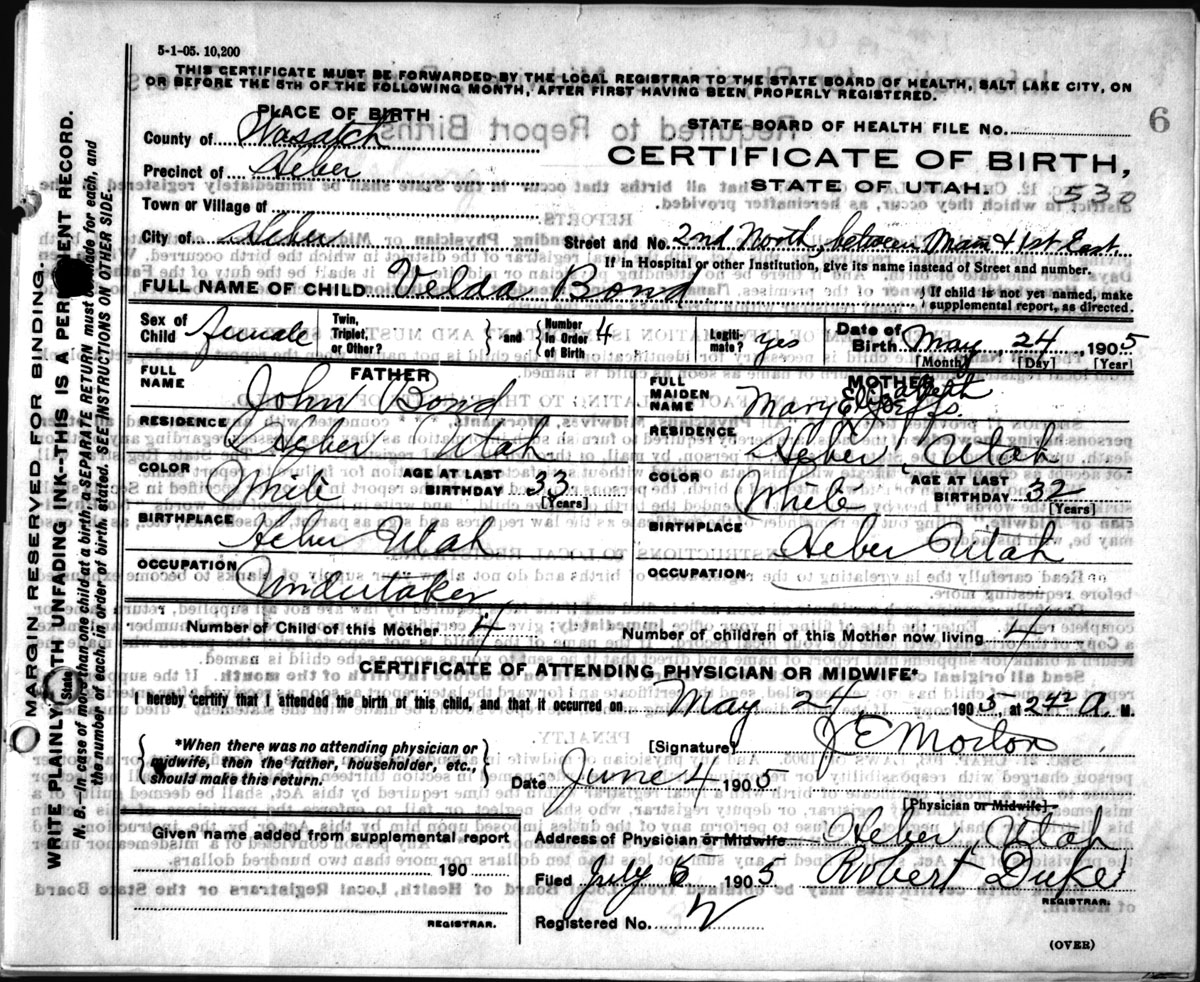 5-1-05. 10,200
THIS CERTIFICATE MUST BE FORWARDED BY THE LOCAL REGISTRAR TO THE STATE BOARD OF HEALTH, SALT LAKE CITY, ON
OR BEFORE THE 5TH OF THE FOLLOWING MONTH, AFTER FIRST HAVING BEEN PROPERLY REGISTERED.
6
PLACE OF BIRTH
STATE BOARD OF HEALTH FILE NO.
County of Wasatch
CERTIFICATE OF BIRTH,
Precinct of Heber
STATE OF UTAH.
530
Town or Village of
City of Heber
Street and No. 2nd North, between Main & 1st East
If in Hospital or other Institution, give its name instead of Street and number.
FULL NAME OF CHILD Velda Bond
If child is not yet named, make
supplemental report, as directed.
Sex of
Child female
Twin,
Triplet,
or Other?
and
Number
in Order
of Birth 4
Legiti-
mate? yes
Date of
Birth May 24 1905
[Month] [Day] [Year]
FATHER
FULL
NAME John Bond
RESIDENCE Heber Utah
COLOR White
AGE AT LAST
BIRTHDAY 33
[Years]
BIRTHPLACE Heber Utah
OCCUPATION Undertaker
MOTHER
FULL
MAIDEN
NAME Mary Elizabeth Jeffs
RESIDENCE Heber Utah
COLOR White
AGE AT LAST
BIRTHDAY 32
[Years]
BIRTHPLACE Heber Utah
OCCUPATION
Number of Child of this Mother 4
Number of children of this Mother now living 4
CERTIFICATE OF ATTENDING PHYSICIAN OR MIDWIFE*
I hereby certify that I attended the birth of this child, and that it occurred on May 24 1905, at 2 42 A. M.
*When there was no attending physician or
midwife, then the father, householder, etc.,
should make this return.
[Signature] J E Morton
Date June 4 1905
[Physician or Midwife]
Given name added from supplemental report
190
REGISTRAR.
Address of Physician or Midwife Heber Utah
Filed July 5 1905 Robert Duke
REGISTRAR.
Registered No.
(OVER)
MARGIN RESERVED FOR BINDING.
WRITE PLAINLY WITH UNFADING INK--THIS IS A PERMANENT RECORD.
N. B.--In case of more than one child at a birth, a SEPARATE RETURN must be made for each, and
the number of each, in order of birth, stated. SEE INSTRUCTIONS ON OTHER SIDE.